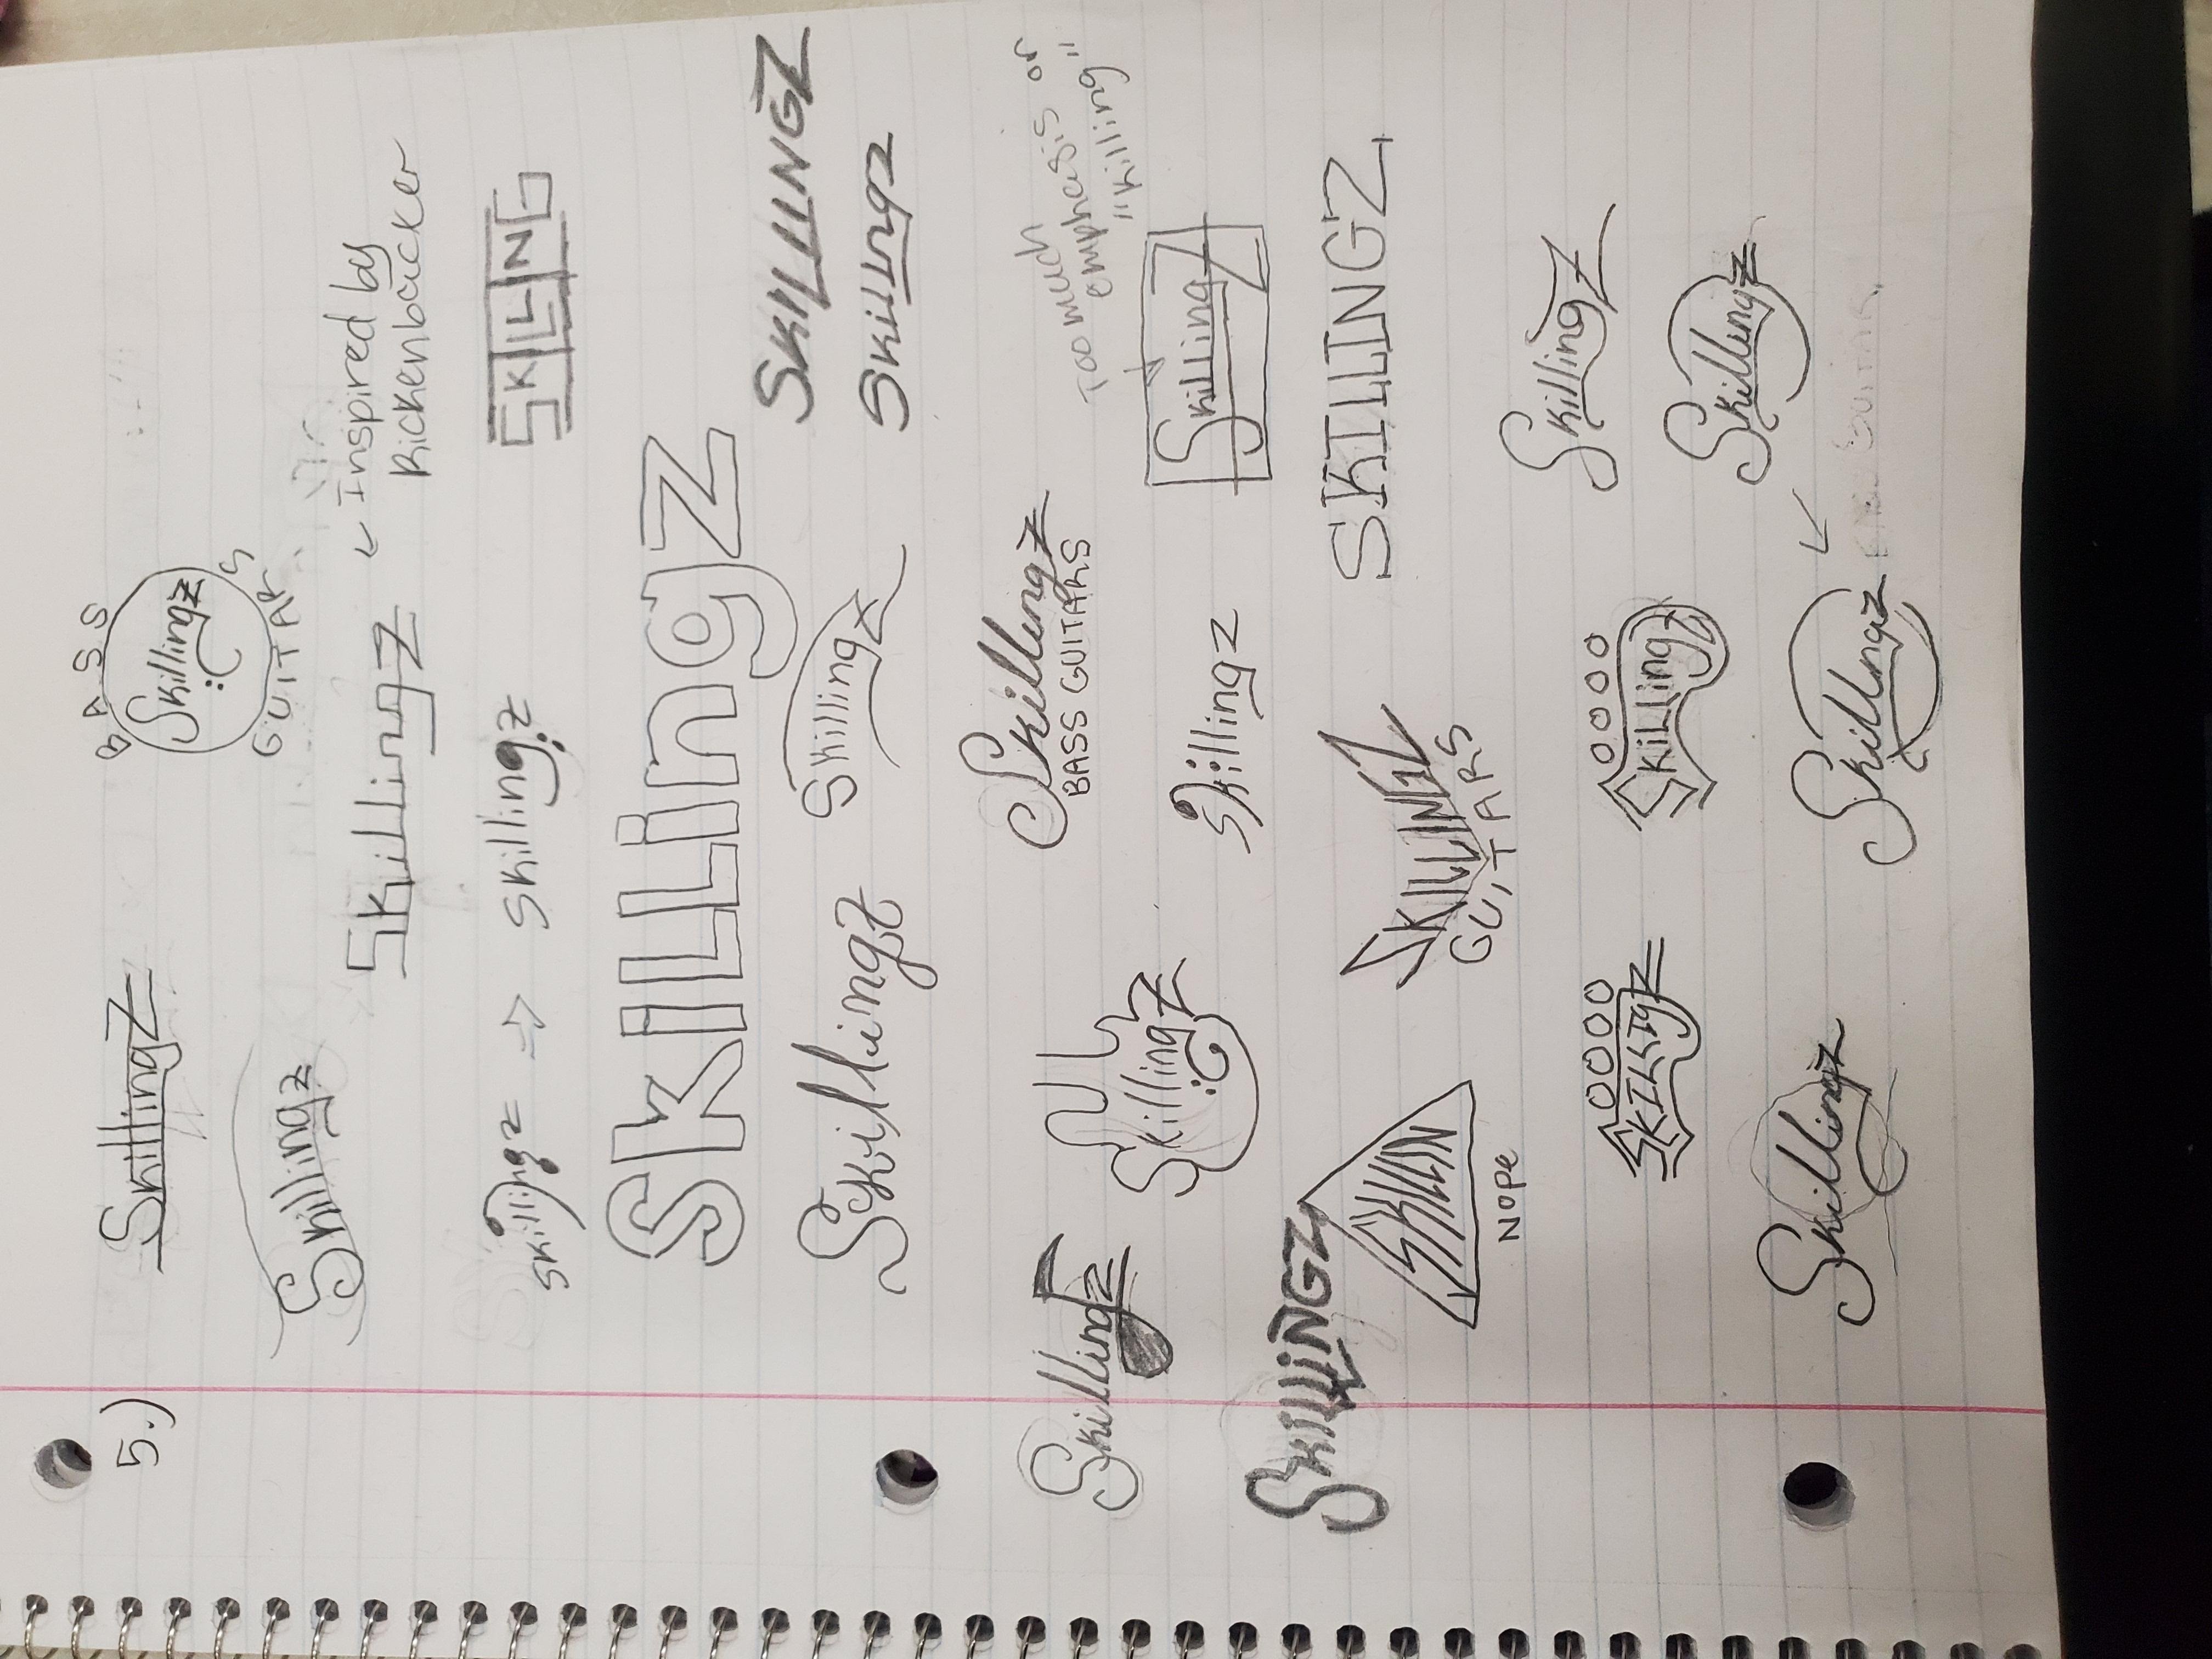 5.)
Skillingz
BASS
Skillingz
GUITARS
Skillingz
Skillingz
← Inspired by
Rickenbacker
Skillingz → Skillingz
SKLNG
SKiLLingZ
SKILLINGZ
Skillingz
Skillingz
Skillingz
SKiLLingz
Skillingz
Skillingz
Skillingz
BASS GUITARS
Too much
emphasis on
"killing"
Skillingz
Skillingz
SkillingZ
SKILLiNGZ
SKILLINGZ
GUITARS
SKILLINGZ
SKLLN
Nope
SKiLLingz
SkillingZ
Skillingz
Skillingz
Skillingz